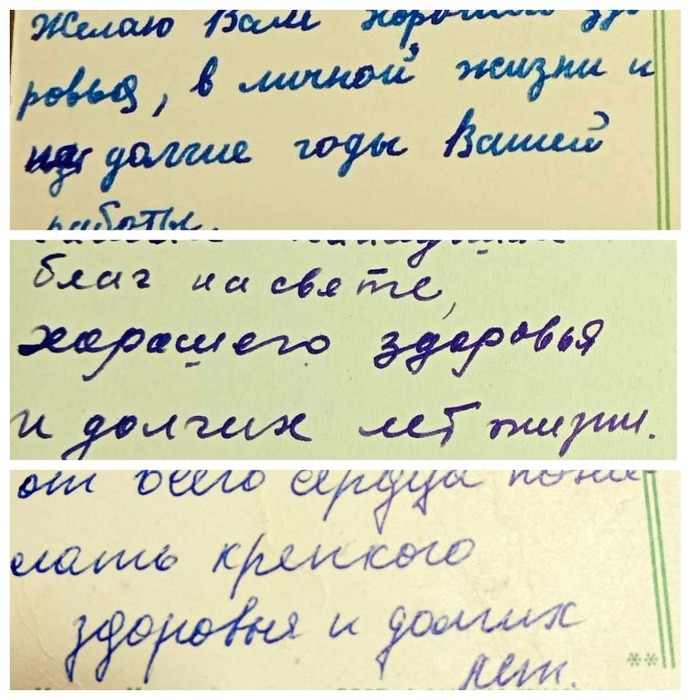 Желаю Вам хорошего здо
ровья, в личной жизни и
на долгие годы Вашей
работы.
благ на свете,
харашего здоровья
и долгих лет жизни.
от всего сердца поже-
лать крепкого
здоровья и долгих
лет.
**